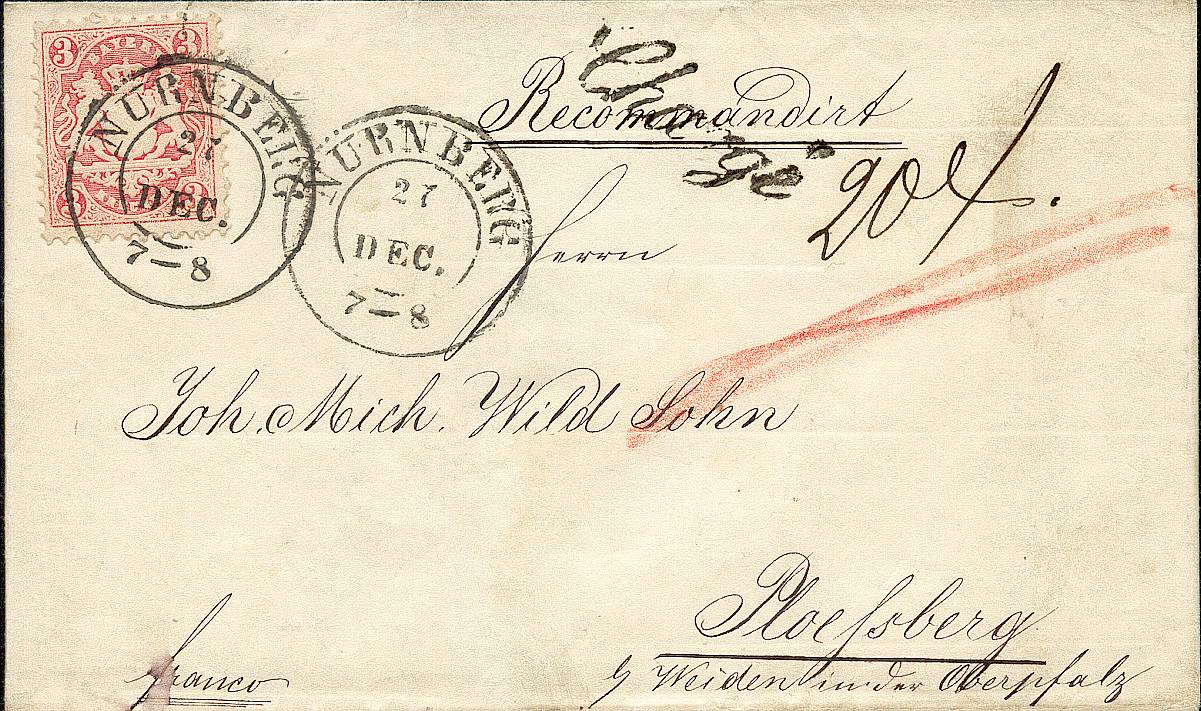 3 BAYERN 3
3 3
NÜRNBERG
27
DEC.
7—8
NÜRNBERG
27
DEC.
7—8
Recommandirt
Chargé
Herrn
Joh. Mich. Wild Sohn
Ploeſsberg
Weiden in der Oberpfalz
franco